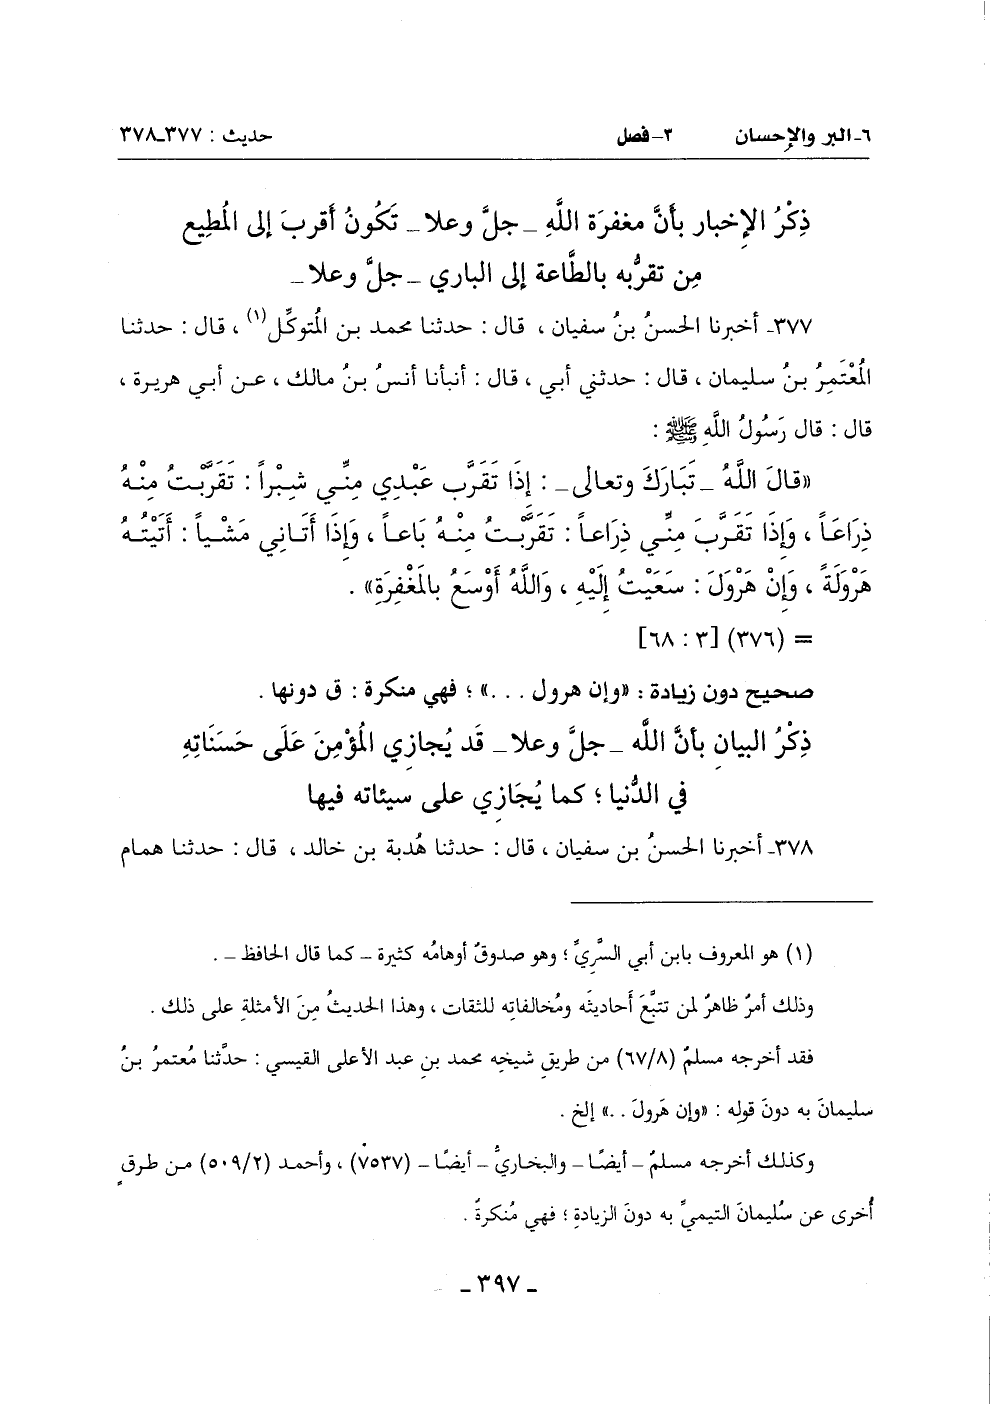 ٦-البر والإحسان ٢-فصل حديث : ٣٧٧-٣٧٨
ذِكْرُ الإخبارِ بأنَّ مغفرَة اللَّهِ -جلَّ وعلا- تَكُونُ أقربَ إلى المُطِيع
مِن تقرُّبه بالطَّاعة إلى الباري -جلَّ وعلا-
٣٧٧- أخبرنا الحسنُ بنُ سفيان ، قال : حدثنا محمد بن المُتوكِّل(١) ، قال : حدثنا
المُعْتَمِرُ بنُ سليمان ، قال : حدثني أبي ، قال : أنبأنا أنسُ بنُ مالك ، عن أبي هريرة ،
قال : قال رَسُولُ اللَّهِ ﷺ :
«قالَ اللَّهُ -تَبَارَكَ وتعالى- : إذَا تَقَرَّب عَبْدِي مِنِّي شِبْراً : تَقَرَّبْتُ مِنْهُ
ذِرَاعَاً ، وَإِذَا تَقَرَّبَ مِنِّي ذِرَاعاً : تَقَرَّبْتُ مِنْهُ بَاعاً ، وَإِذَا أَتَانِي مَشْياً : أَتَيْتُهُ
هَرْوَلَةً ، وَإِنْ هَرْوَلَ : سَعَيْتُ إِلَيْهِ ، وَاللَّهُ أَوْسَعُ بالمَغْفِرَةِ» .
= (٣٧٦) [٣ : ٦٨]
صحيح دون زيادة : «وإن هرول . . .» ؛ فهي منكرة : ق دونها .
ذِكْرُ البيانِ بأنَّ اللَّه -جلَّ وعلا- قَد يُجازِي المُؤْمِنَ عَلَى حَسَنَاتِهِ
في الدُّنيا ؛ كما يُجَازِي على سيئاته فيها
٣٧٨- أخبرنا الحسنُ بن سفيان ، قال : حدثنا هُدبة بن خالد ، قال : حدثنا همام
(١) هو المعروف بابن أبي السَّرِيِّ ؛ وهو صدوقٌ أوهامُه كثيرة - كما قال الحافظ - .
وذلك أمرٌ ظاهرٌ لمن تتبَّعَ أحاديثَه ومُخالفاتِه للثقات ، وهذا الحديثُ مِنَ الأمثلةِ على ذلك .
فقد أخرجه مسلمٌ (٦٧/٨) من طريقِ شيخِه محمد بنِ عبد الأعلى القيسي : حدَّثنا مُعتمرُ بنُ
سليمانَ به دونَ قوله : «وإن هَرولَ . .» إلخ .
وكذلك أخرجه مسلمٌ - أيضًا - والبخاريُّ - أيضًا - (٧٥٣٧) ، وأحمد (٥٠٩/٢) من طرقٍ
أُخرى عن سُليمانَ التيميِّ به دونَ الزيادةِ ؛ فهي مُنكرةٌ .
- ٣٩٧ -